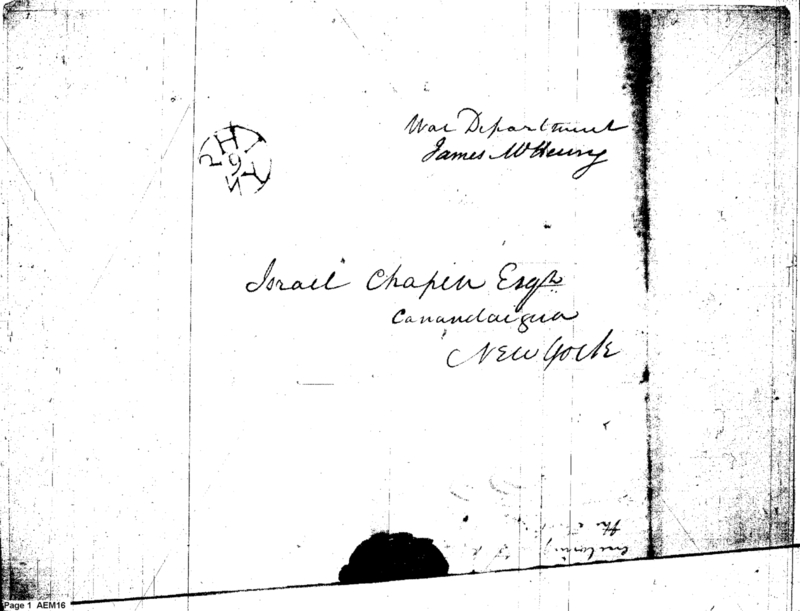 War Department
James McHenry
PHI
9
Israel Chapin Esqr
Canandaigua
New York
the
enclosing
Page 1 AEM16